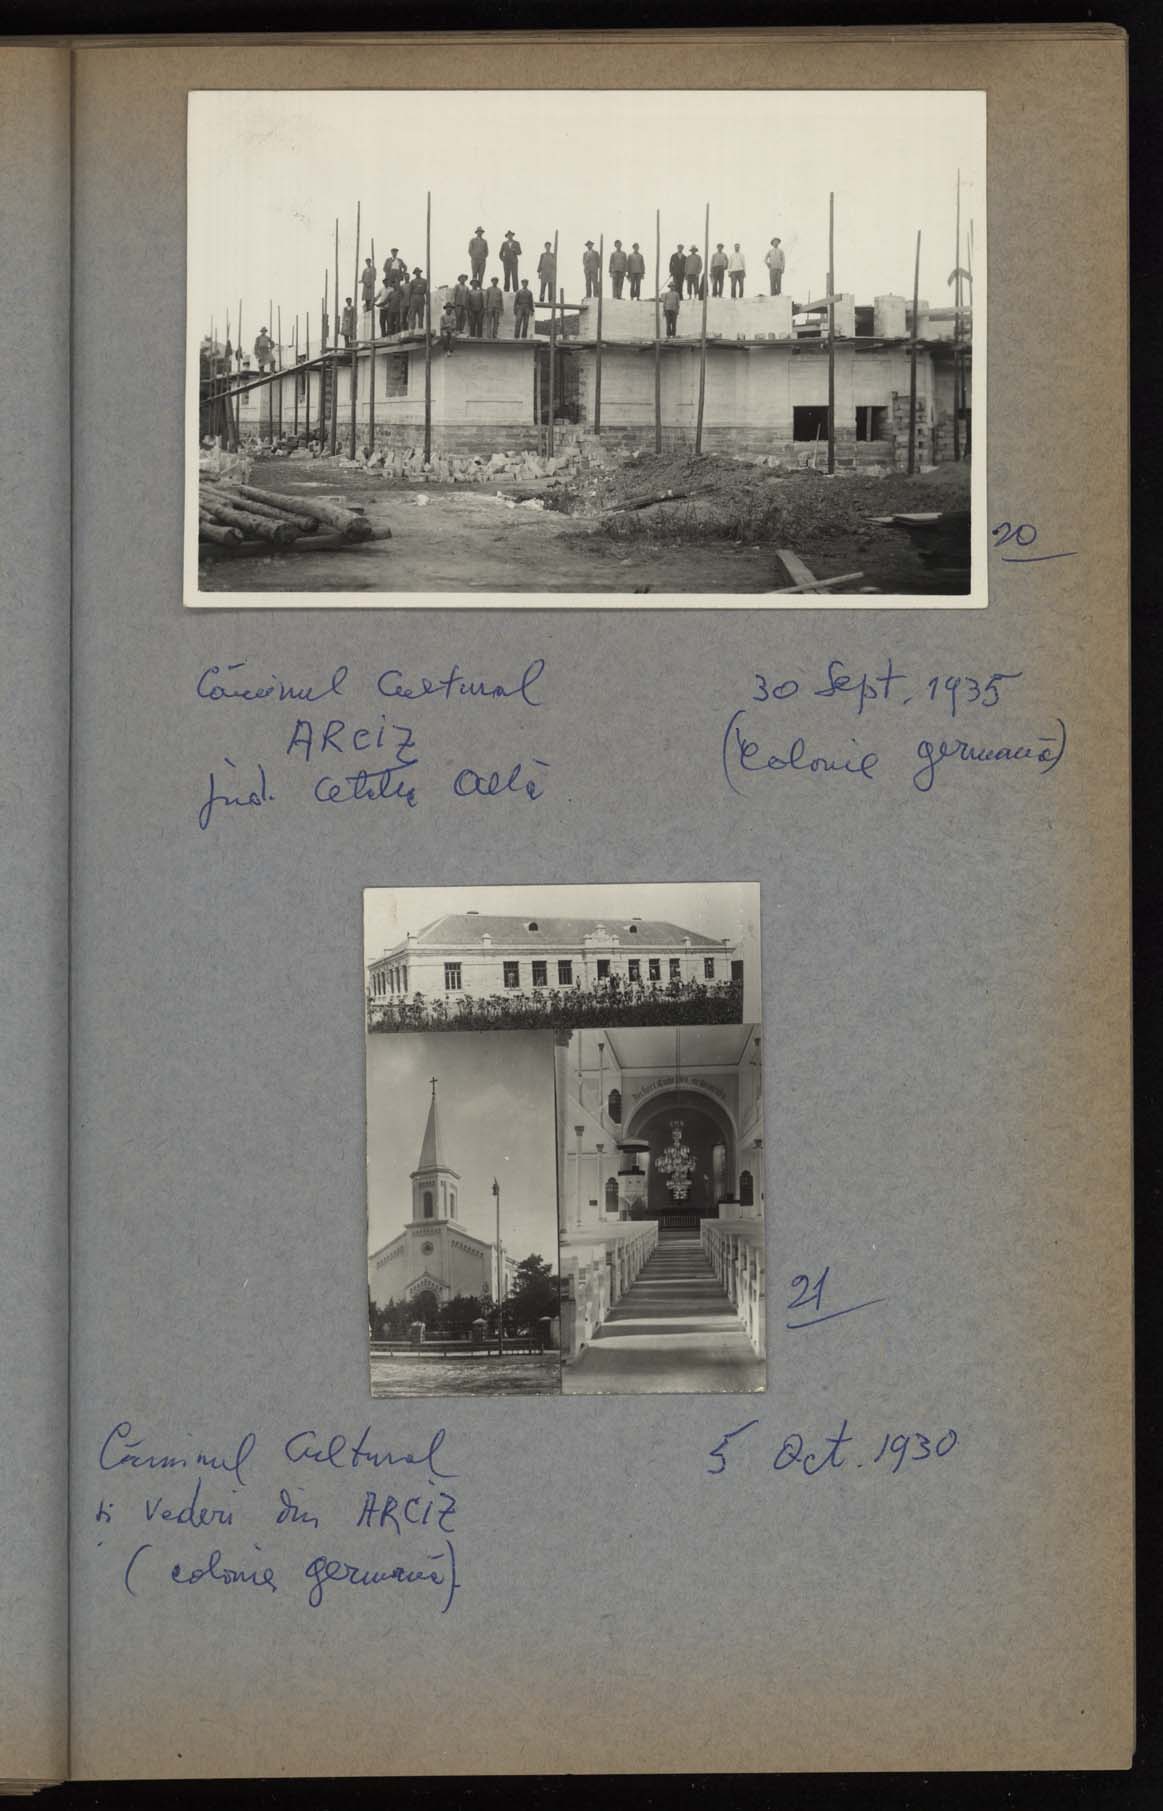 20
Căminul Cultural
ARCIZ
jud. Cetatea Albă
30 Sept. 1935
(Colonie germană)
21
Căminul Cultural
și Vederi din ARCIZ
(colonie germană)
5 Oct. 1930